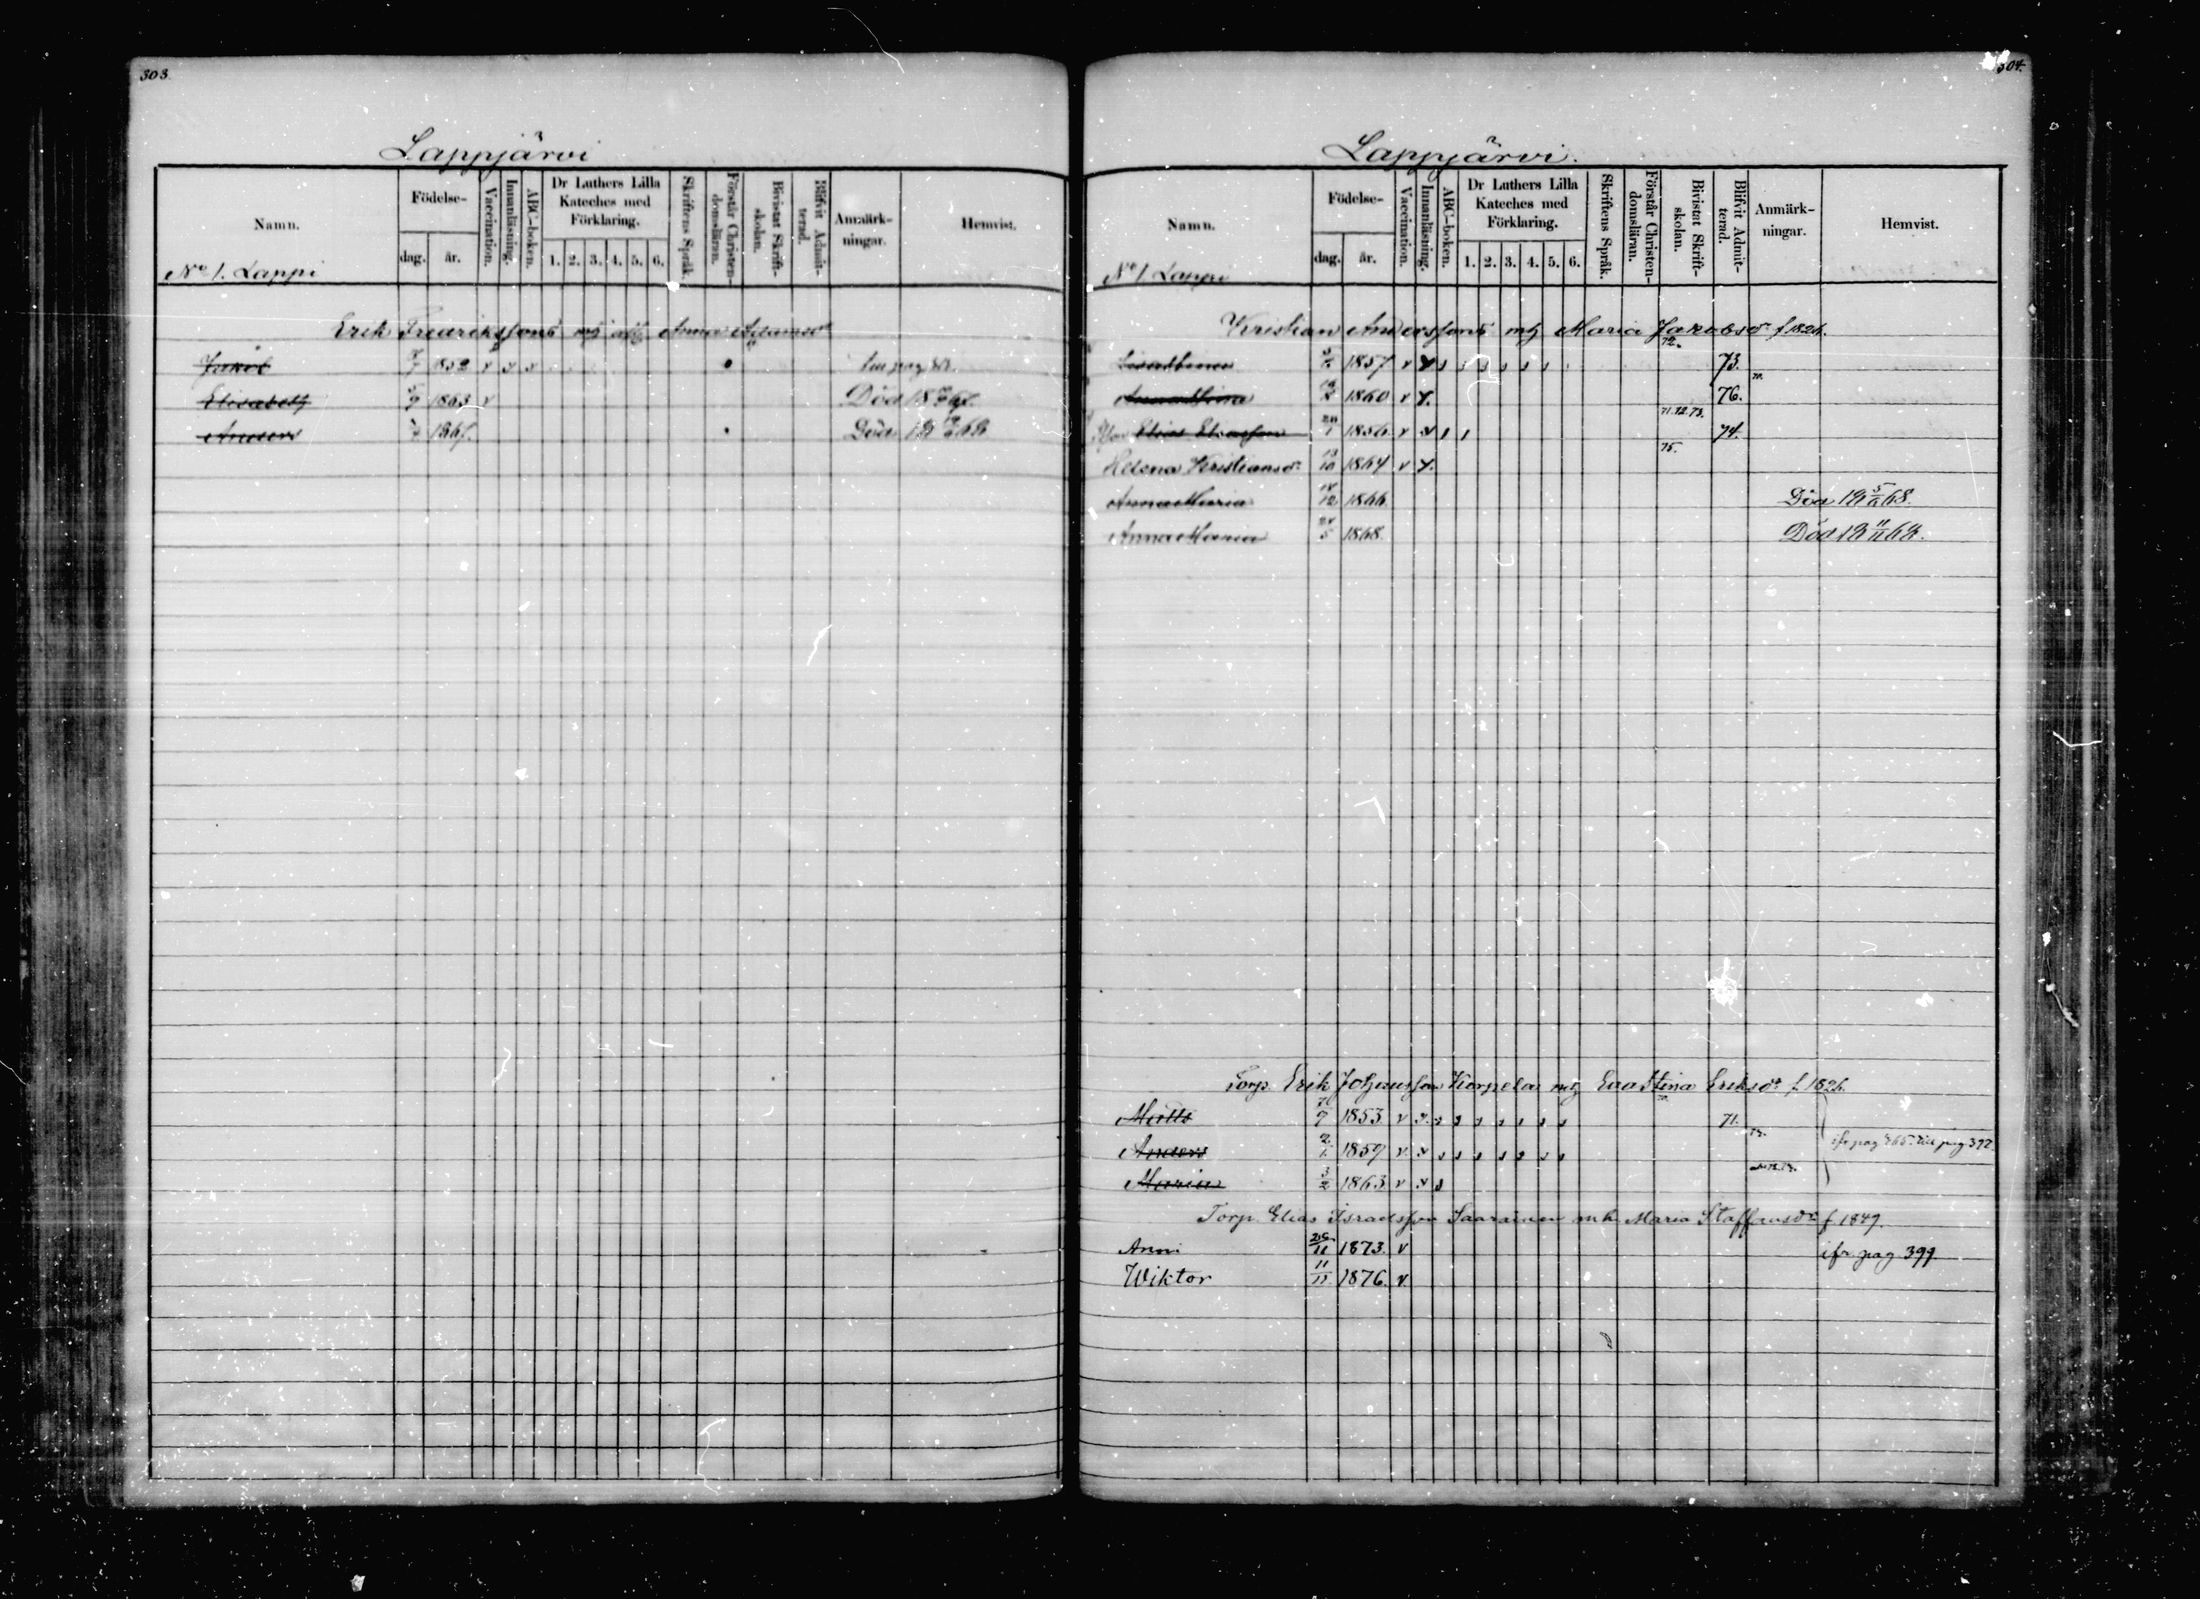 303.
Lappjärvi
Namn.
Födelse-
dag.
år.
Vaccination.
Innanläsning.
ABC-boken.
Dr Luthers Lilla Kateches med Förklaring.
1. 2. 3. 4. 5. 6.
Skriftens Språk.
Förstår Christen-domsläran.
Bivistat Skrift-skolan.
Blifvit Admit-terad.
Anmärk-ningar.
Hemvist.
No 1. Lappi
Erik Fredrikssons Anna Adamsdr
Jakob 7 1852 v v v
Elisabeth 9 1863 v Död
Anders 1867. Död
304.
Lappjärvi.
Namn.
Födelse-
dag.
år.
Vaccination.
Innanläsning.
ABC-boken.
Dr Luthers Lilla Kateches med Förklaring.
1. 2. 3. 4. 5. 6.
Skriftens Språk.
Förstår Christen-domsläran.
Bivistat Skrift-skolan.
Blifvit Admit-terad.
Anmärk-ningar.
Hemvist.
No 1. Lappi
Kristian Anderssons mh Maria Jakobsdr f 1826.
1857 v 72. 73.
1860 v 76.
Elias Eliasson 1856 v 71.72.73. 74.
Helena Kristiansdr 13/10 1864 v 75.
Anna Maria 18/12 1866 Död 18 5/6 68.
Anna Maria 24/5 1868. Död 18 11/11 68.
Torp. Erik Johansson Korpela mh Eva Stina Eriksdr f 1826.
Matts 1853 v 71.
Anders 2/1 1859 v v
Maria 3/2 1863 v v
ifr pag 465. till pag 392
Torp. Elias Israelsson Saarainen mh Maria Staffansdr f 1849.
Anni 26/11 1873. v ifr. pag. 399.
Wiktor 11/11 1876. v.